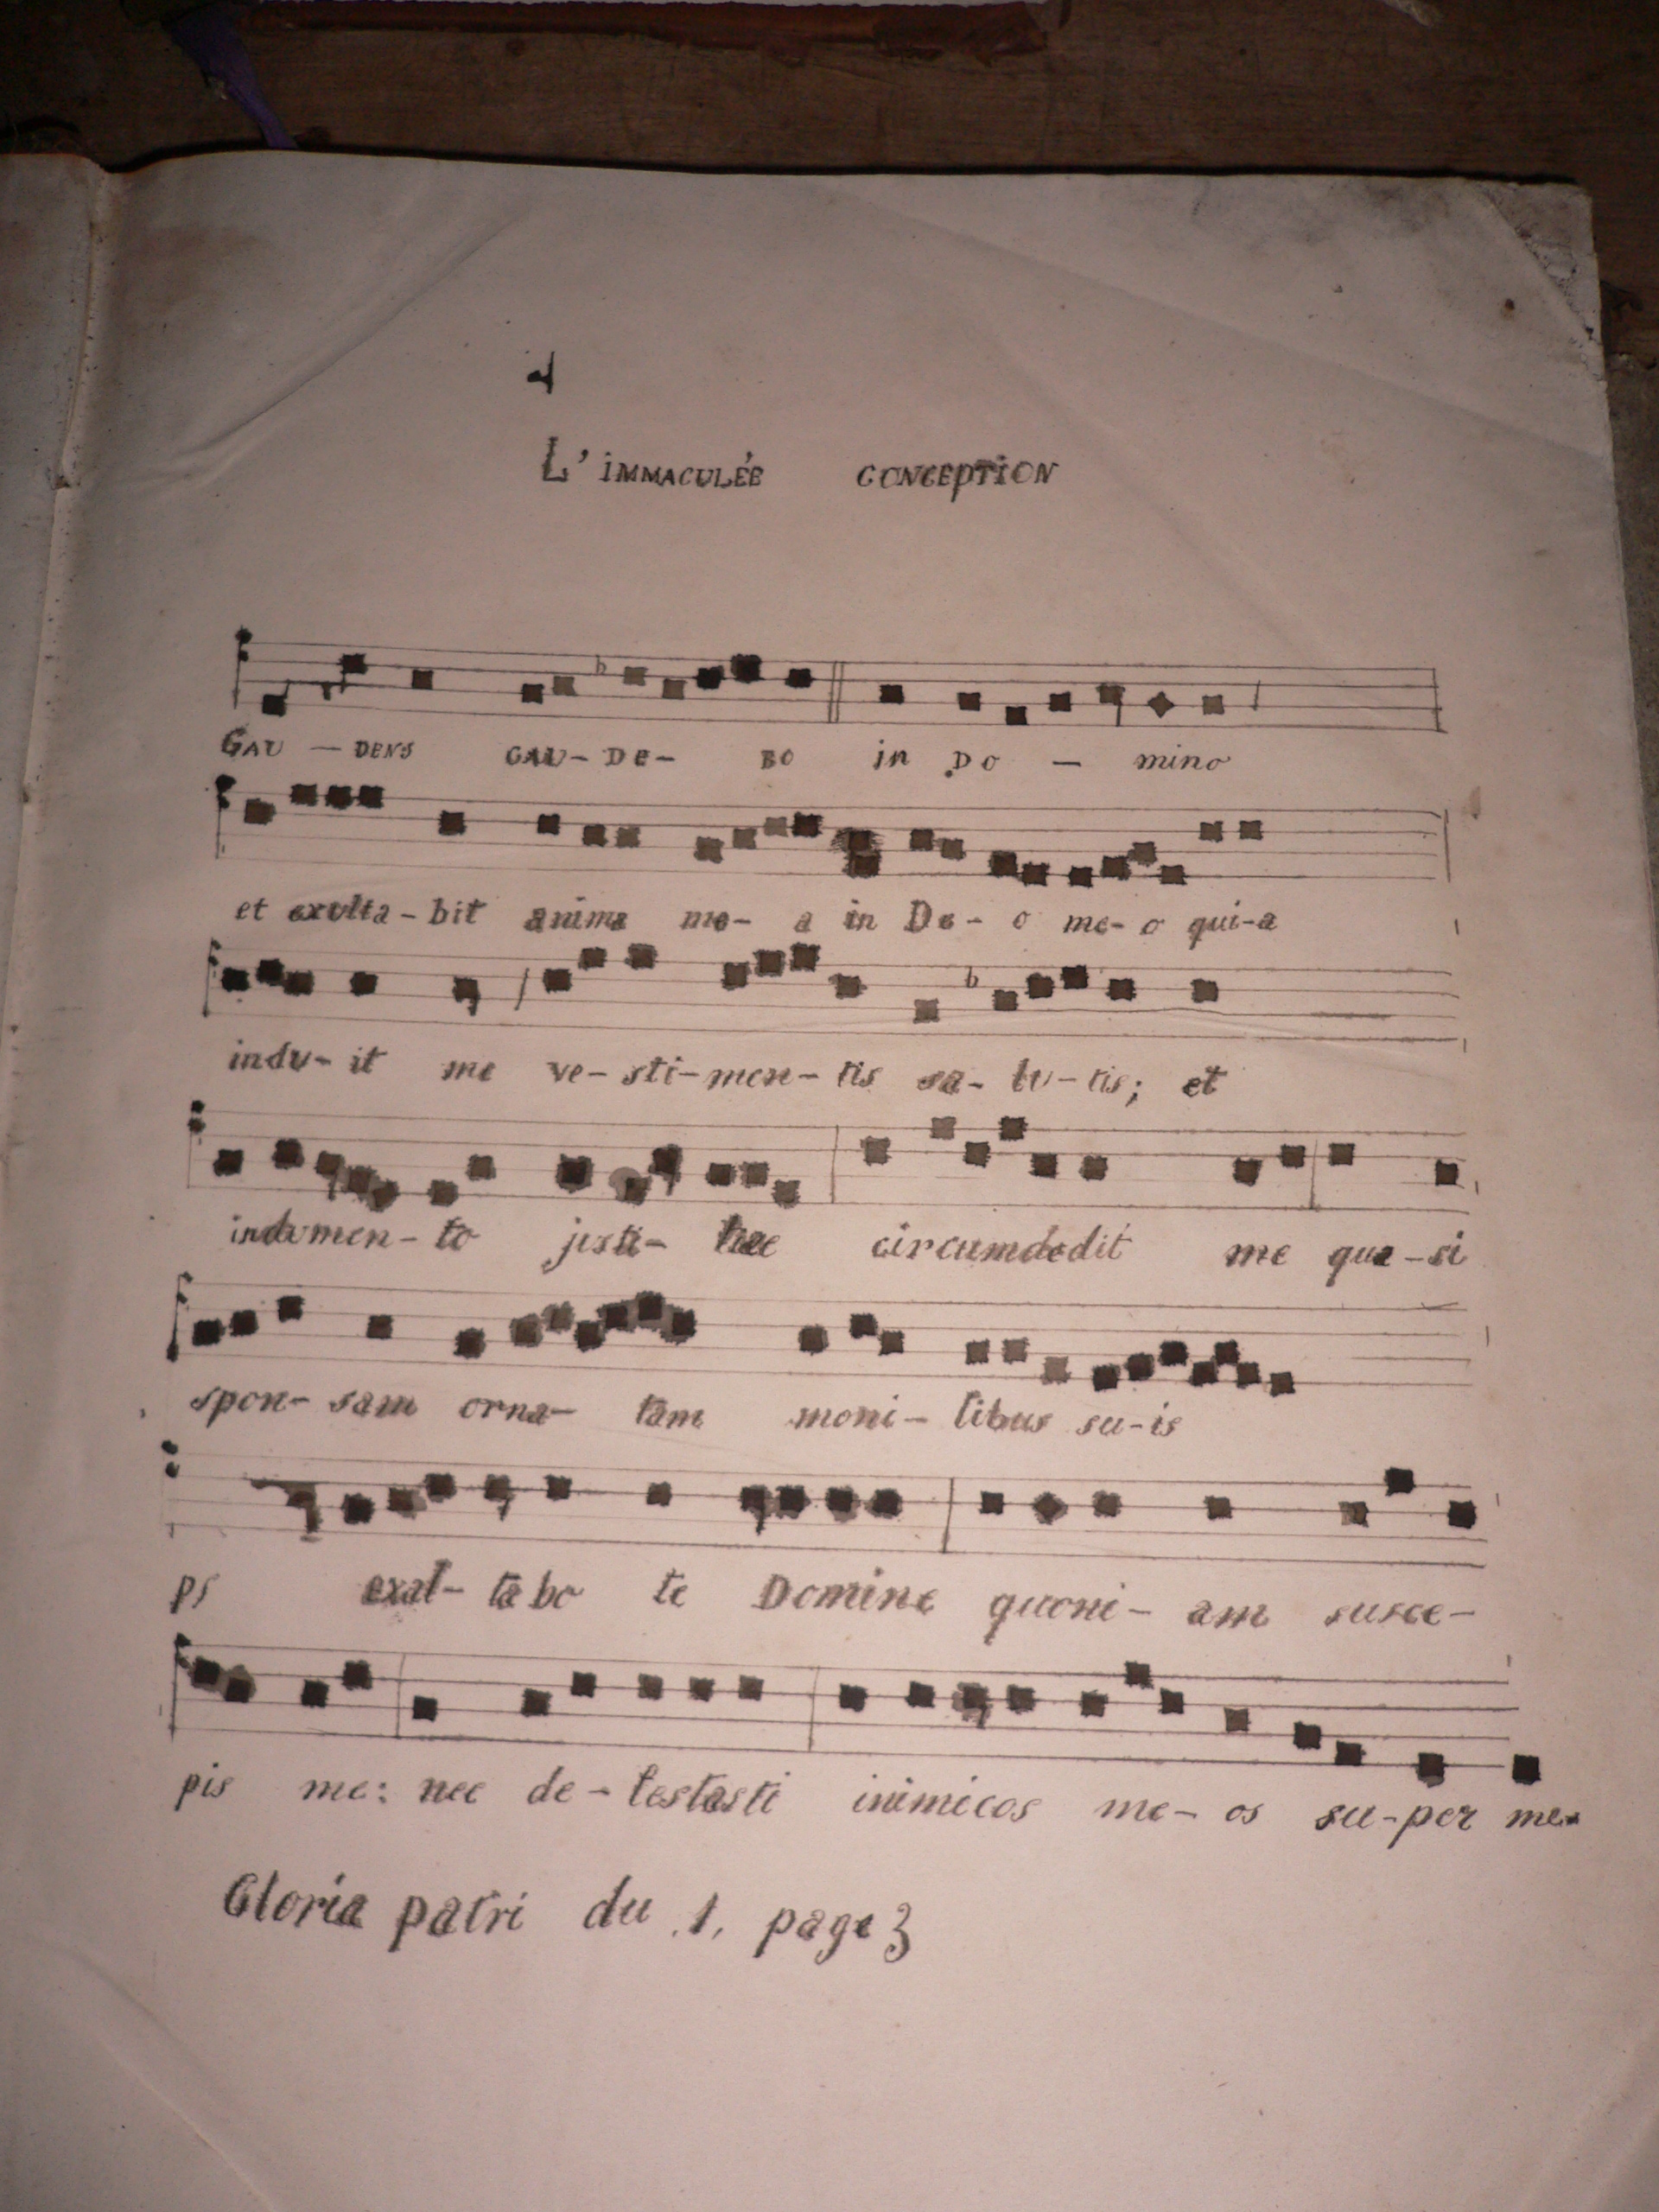 L' IMMACULÉE CONCEPTION
GAU — DENS GAU - DE - BO in DO — mino
et exulta - bit anima me - a in De - o me - o qui - a
indu - it me ve - sti - men - tis sa - lu - tis; et
indumen - to justi - tiae circumdedit me qua - si
spon - sam orna - tam moni - libus su - is
ps exal - tabo te Domine quoni - am susce -
pis me: nec de - lestasti inimicos me - os su - per me
Gloria patri du .1, page 3